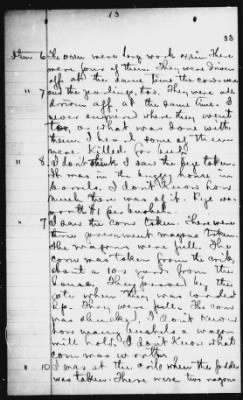 13
33
Item 6. The oxen were long work oxen. There
were four of them. They were driven
off at the same time the cows was
" 7 and the yearlings, too. They were all
driven off, at the same time. I
never enquired where they went
too, or what was done with
them. I heard some of them
was killed for beef.
" 8. I don't think I saw the rye taken.
It was in the house in
barrels. I don't know how
much there was of it. Rye was
worth $1 per bushel.
" 9 I saw the corn taken. There were
three government wagons taken.
The wagons were full. The
corn was taken from the crib,
about a 100 yards from the
house. They passed by the
gate when they was loaded
up. They were full. The corn
was shucked. I don't know
how many bushels a wagon
will hold. I don't know what
corn was worth.
" 10 I was at the crib when the fodder
was taken. There were two wagons